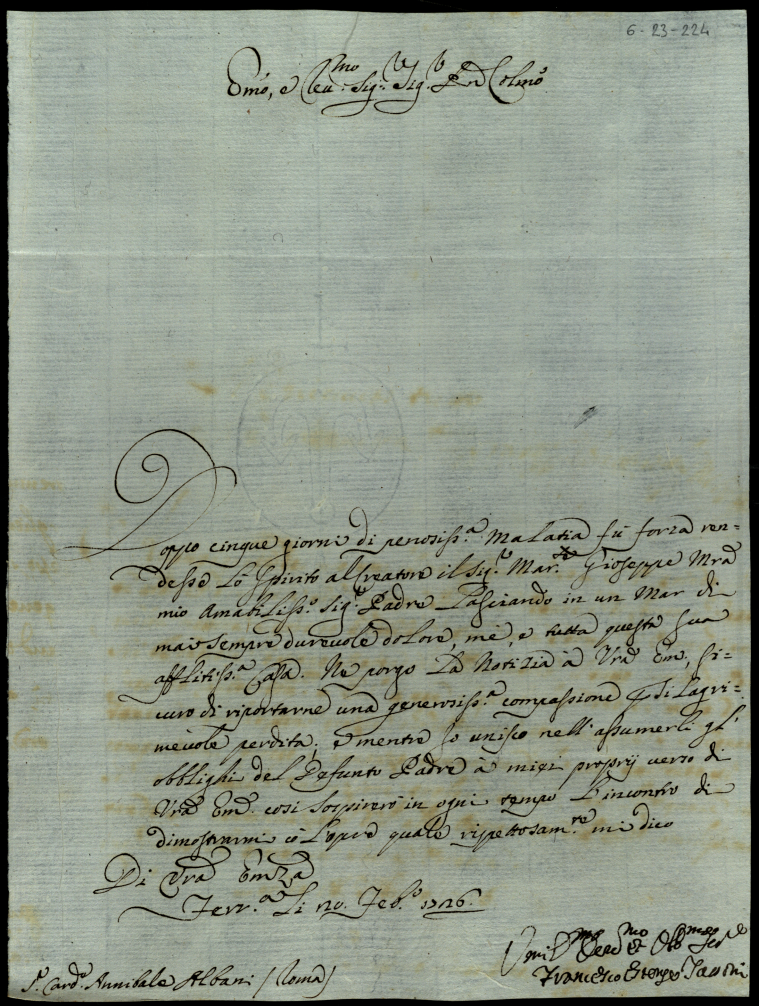 6-23-224
Emo, e Reu:mo Sig:re Sig:re Prne Colmo
Doppo cinque giorni di penosiss:a malatia fù forza ren=
desse lo Spirito al Creatore il Sig:r Mar:se Gioseppe Mra
mio Amabiliss:o Sig:r Padre Lasciando in un Mar di
mai sempre durevole dolore, me, e tutta questa sua
afflitiss:a Casa. Ne porgo la Notizia à Vra Em:, si=
curo di riportarne una generosiss:a compassione di lagri=
mevole perdita; e mentre Io unisco nell'assumerli gl'
obblighi del Defunto Padre à miei proprij verso di
Vra Em:a così sospirerò in ogni tempo l'incontro di
dimostrarmi cõ l'opre quale rispettosam:te mi dico
Di Vra Emza
Ferr:a Li 20. Feb:o 1726.
Umil:mo Deu:mo et Obb:mo Ser:re
Francesco Estense Tassoni
S:r Card:e Annibale Albani (Roma)